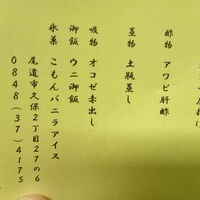 酢物　アワビ肝酢
蒸物　土瓶蒸し
吸物　オコゼ赤出し
御飯　ウニ御飯
氷菓　こもんバニラアイス
尾道市久保2丁目27の6
0848(37)4175